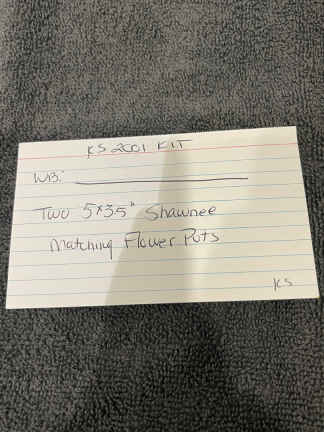 KS 2001 KIT
WB: 
Two 5x3.5" Shawnee
Matching Flower Pots
KS